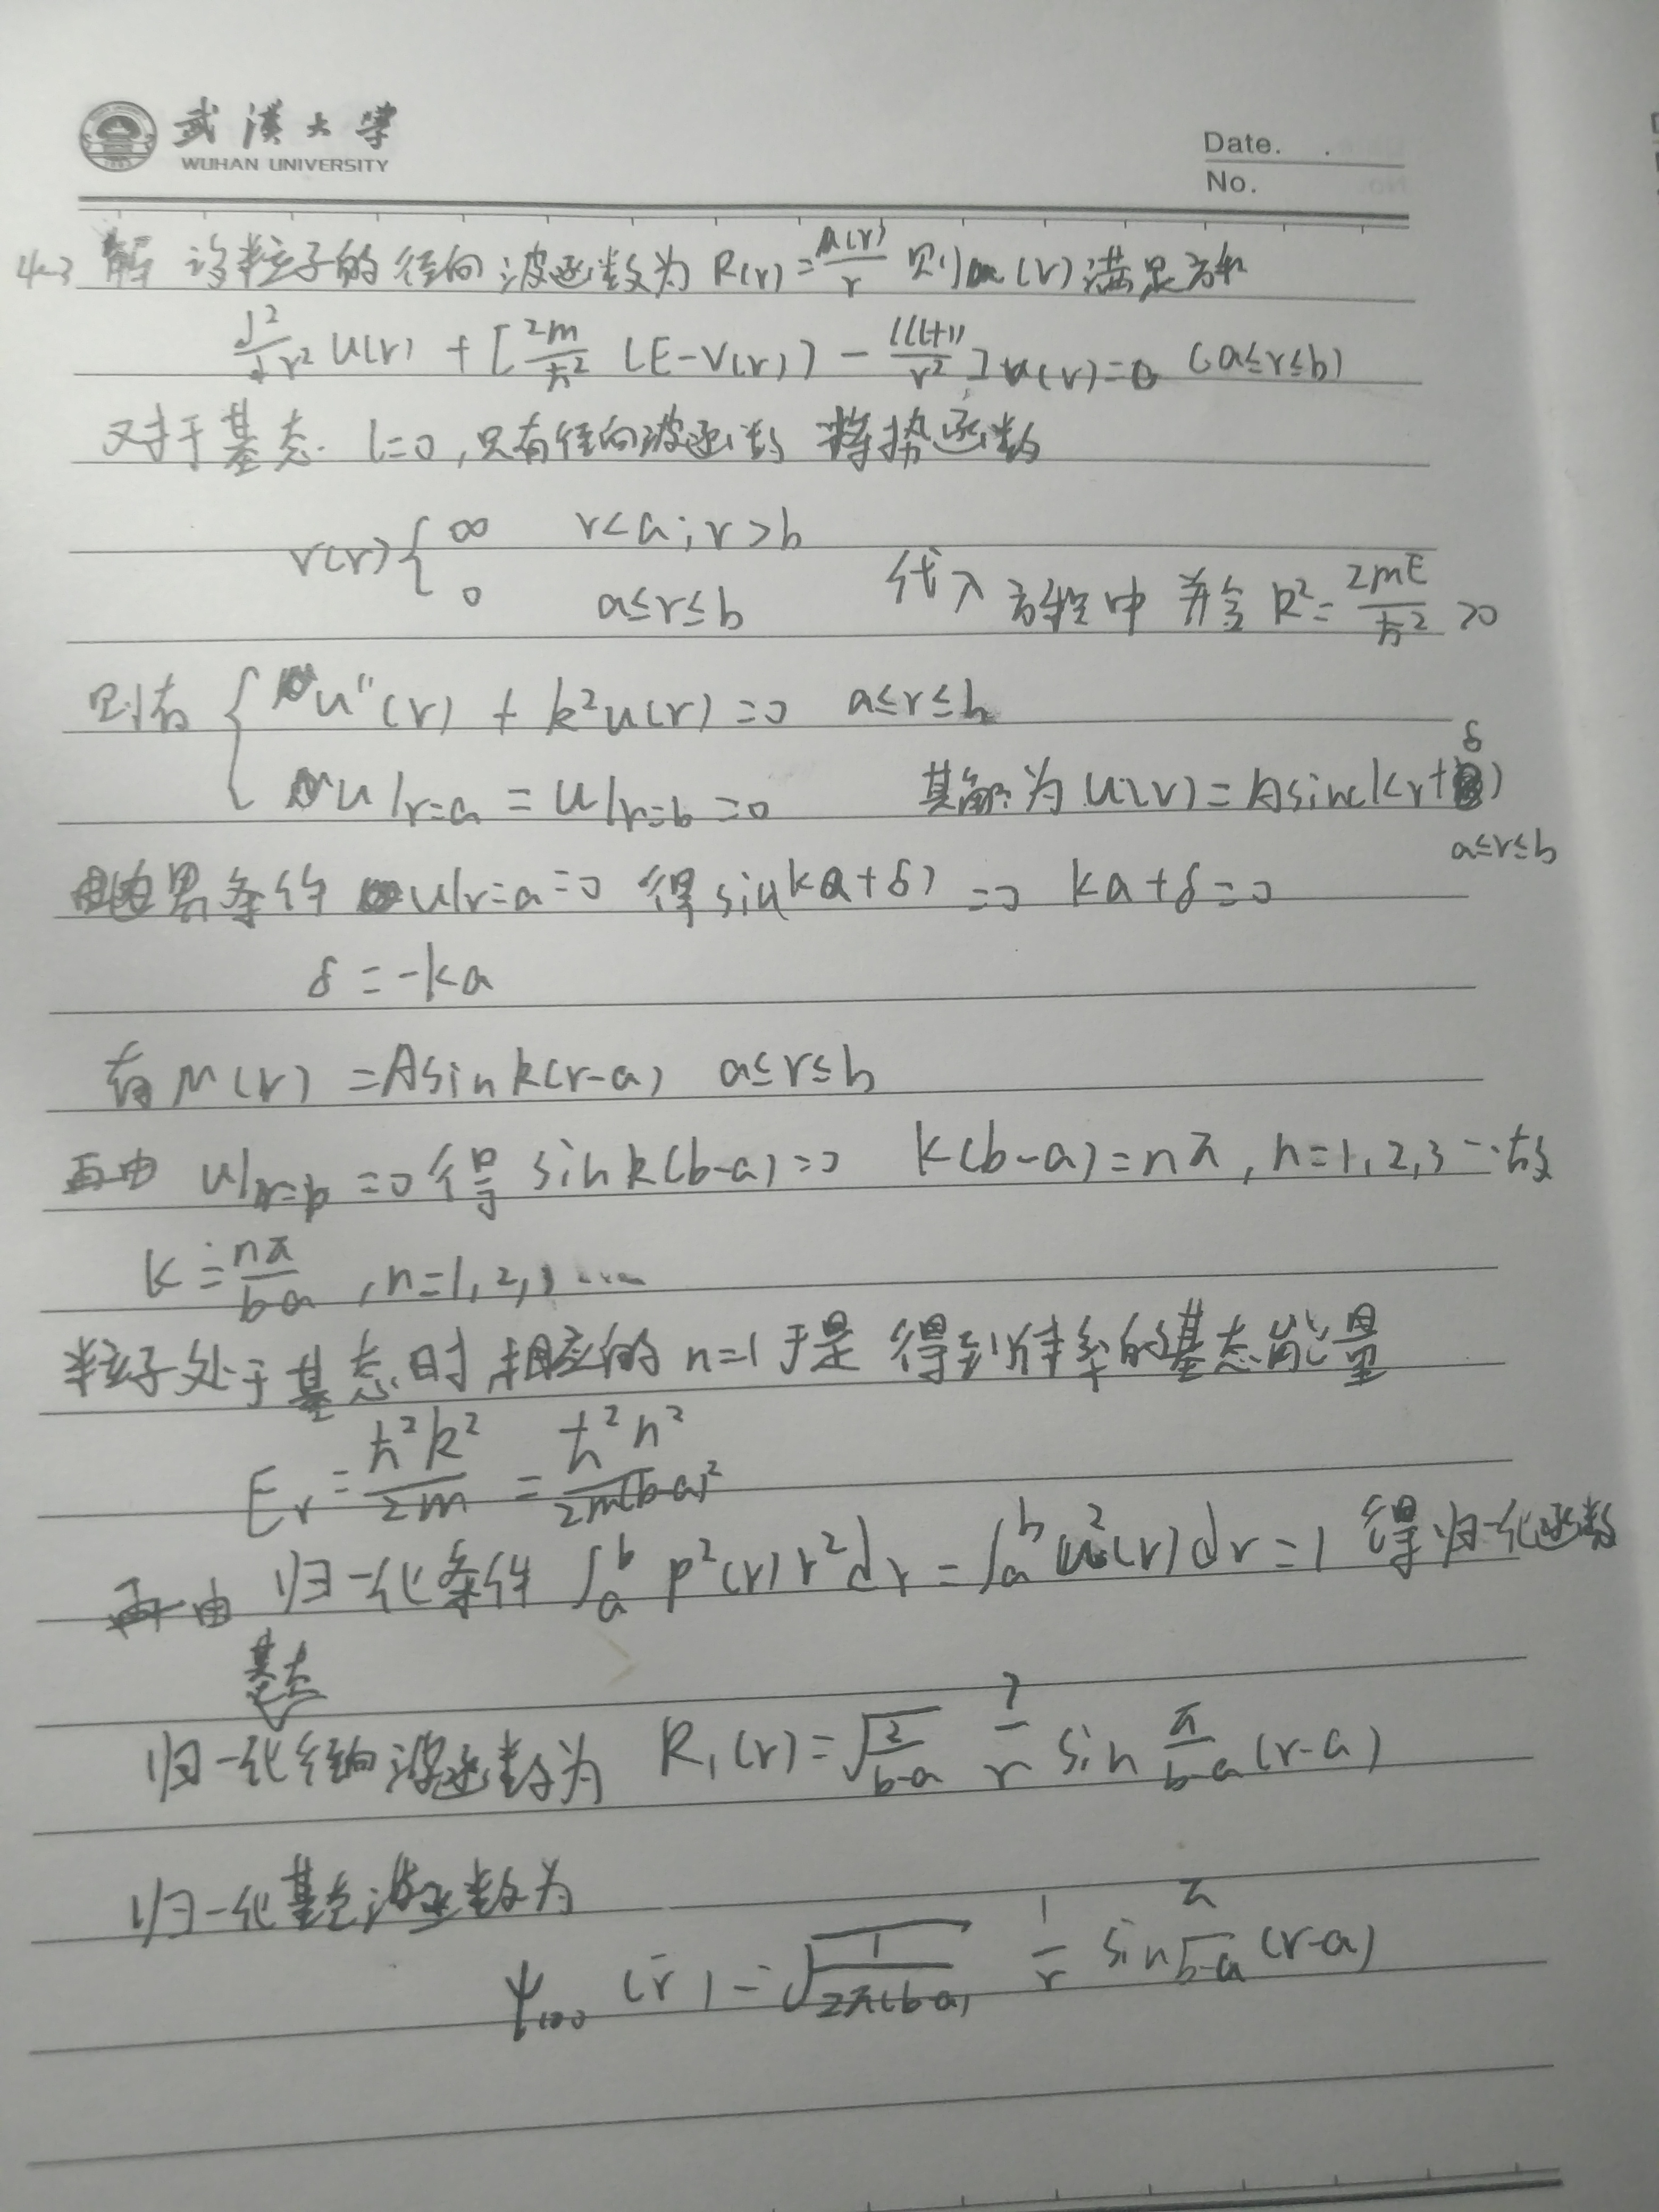 武漢大學
WUHAN UNIVERSITY
Date. .
No.
4-3 解 设粒子的径向波函数为 R(r)=u(r)/r 则u(r)满足方程
d²/dr² u(r) + [2m/ħ² (E-V(r)) - l(l+1)/r²]u(r)=0 (a≤r≤b)
对于基态. l=0,只有径向波函数 将势函数
V(r){∞ r<a;r>b
0 a≤r≤b 代入方程中 并令 k²=2mE/ħ²>0
则有 { u''(r) + k²u(r)=0 a≤r≤b
u|r=a = u|r=b=0 其解为 u(r)=Asin(kr+δ)
a≤r≤b
由边界条件 u|r=a=0 得sin(ka+δ)=0 ka+δ=0
δ=-ka
有u(r)=Asink(r-a) a≤r≤b
再由 u|r=b=0得 sink(b-a)=0 k(b-a)=nπ,n=1,2,3…故
k=nπ/b-a ,n=1,2,3…
粒子处于基态时 相应的n=1于是 得到的基态能量
Er=ħ²k²/2m=ħ²n²/2m(b-a)²
再由 归一化条件 ∫ₐᵇ p²(r)r²dr=∫ₐᵇ u²(r)dr=1 得归一化函数
基态
归一化径向波函数为 R₁(r)=√(2/b-a) 1/r sin π/b-a (r-a)
归一化基态波函数为
ψ₁₀₀(r)=√(1/2π(b-a)) 1/r sin π/b-a (r-a)